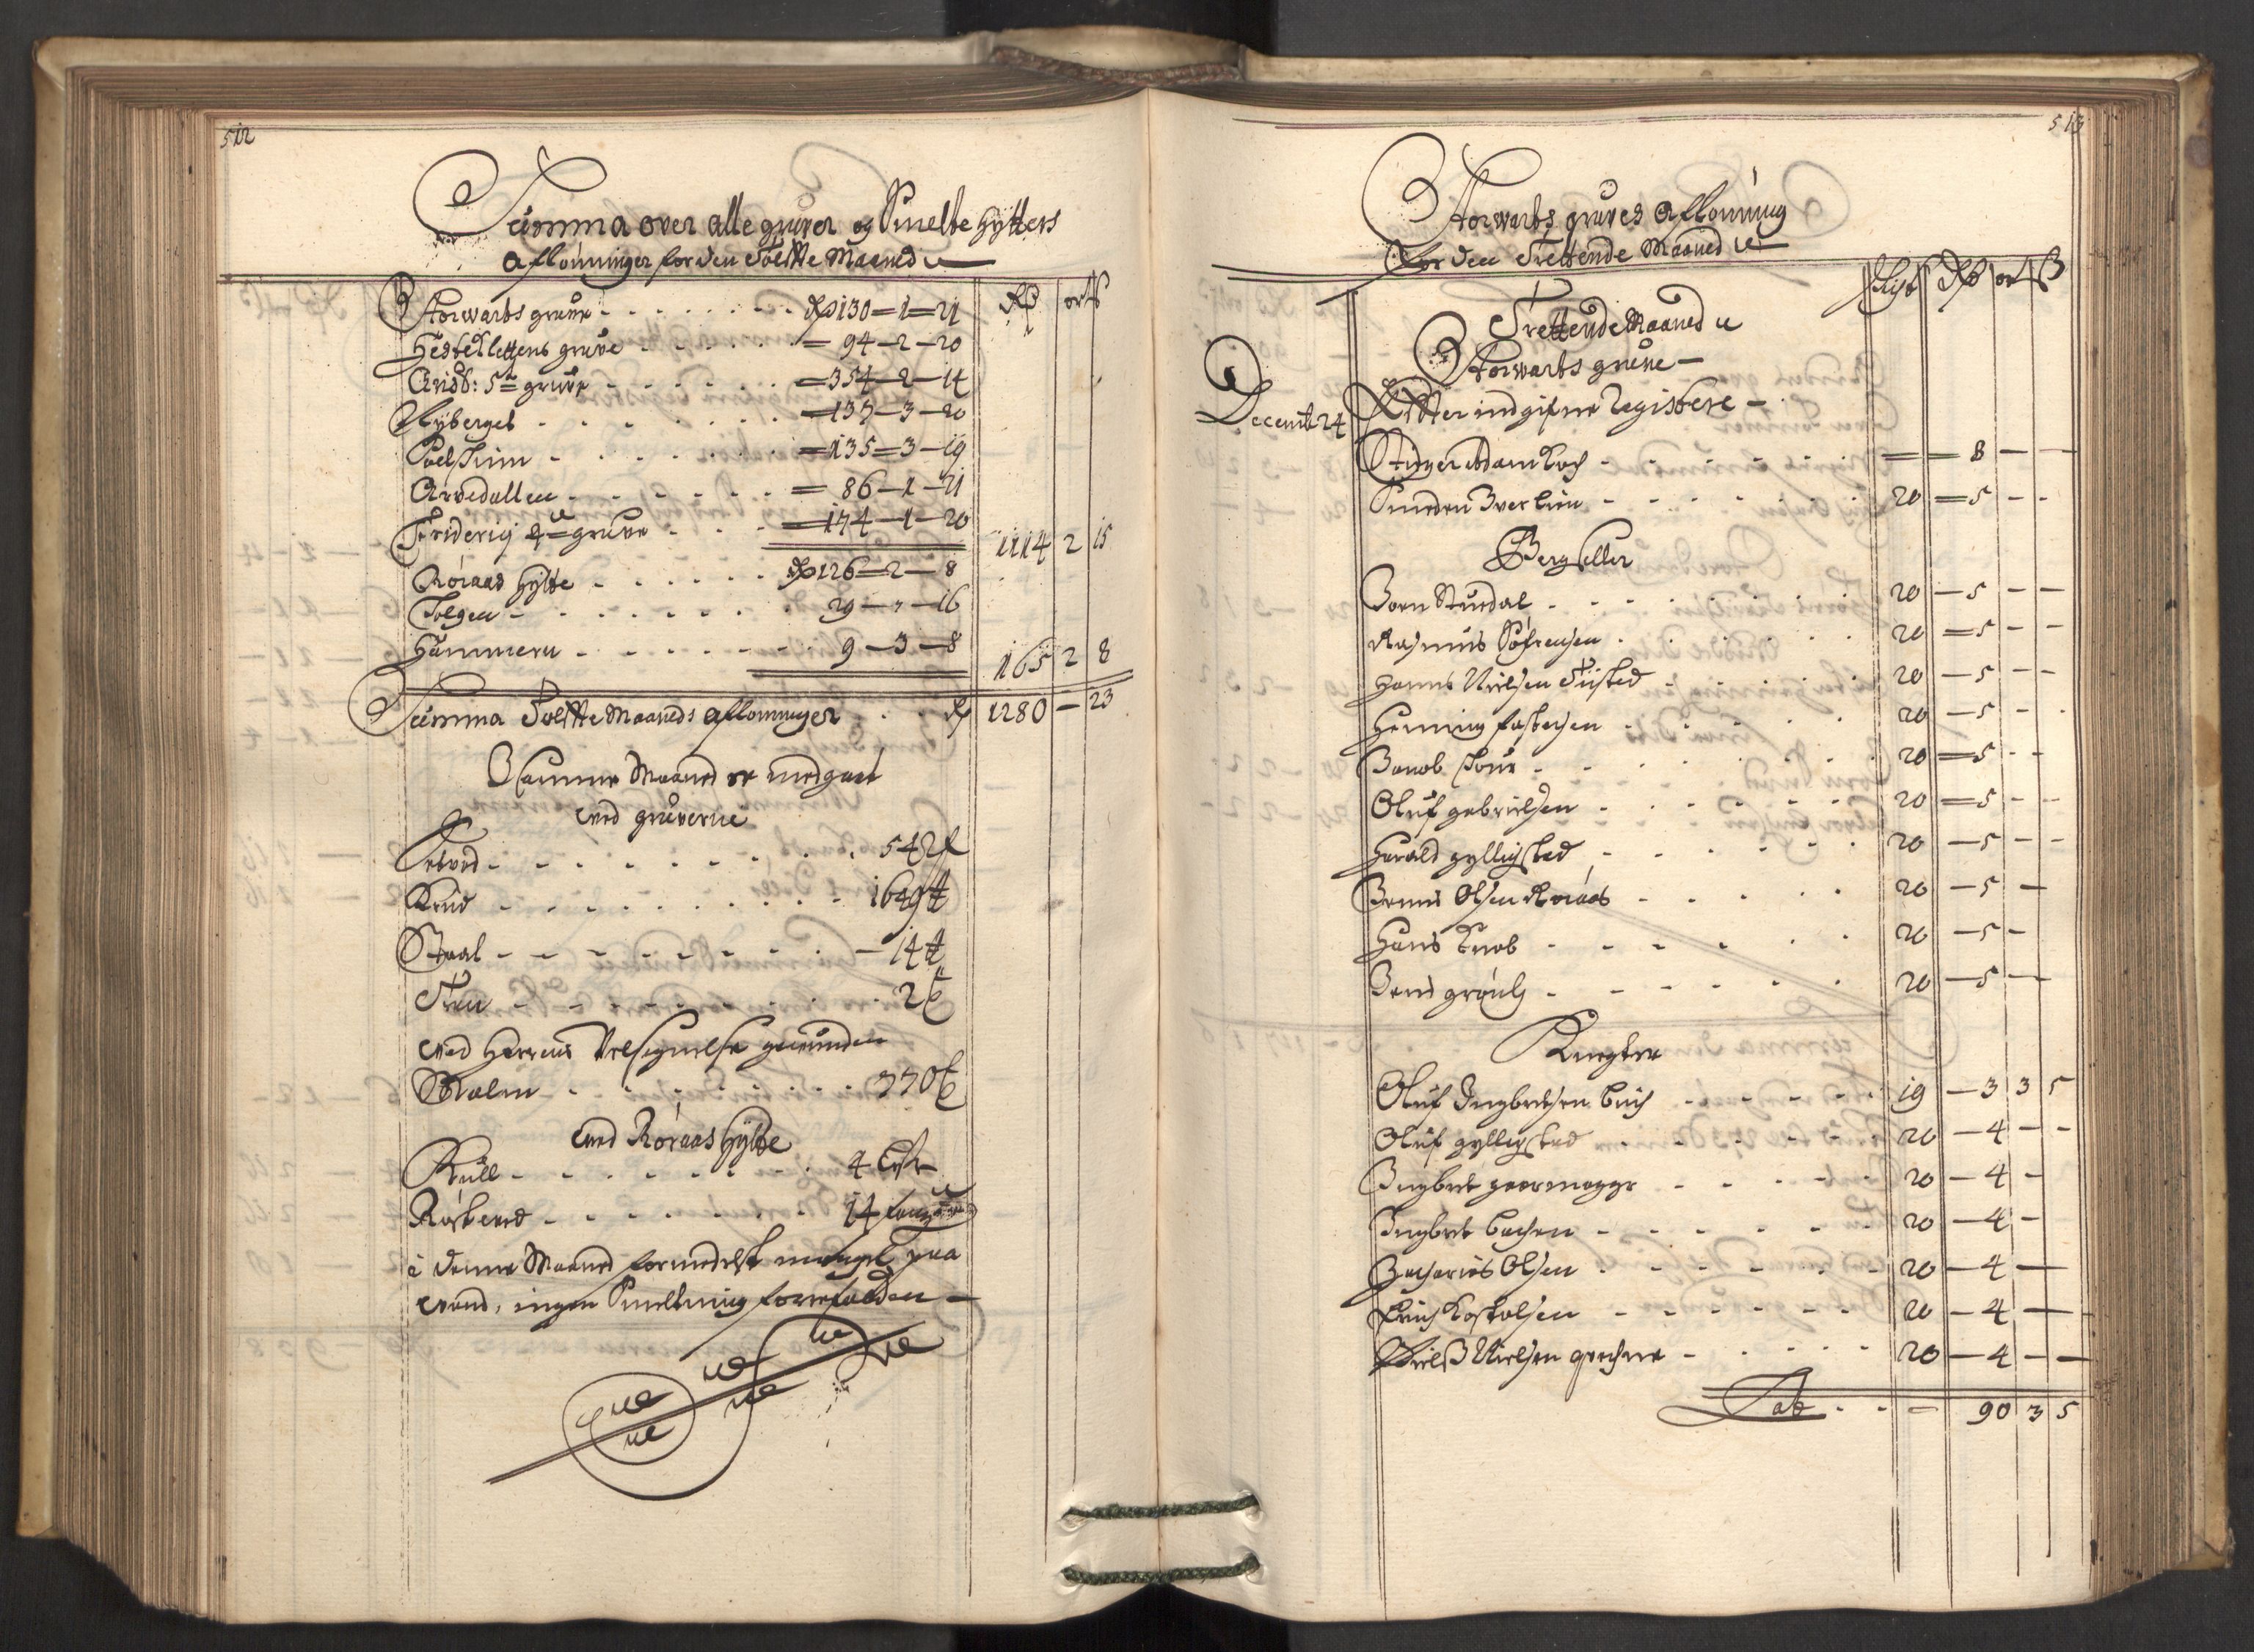 512
Summa over alle gruver og Smelte Hytters
Aflønninger for den Tolffte Maaned
Rd ort ß
Storwarts gruve - - - Rd 130 = 1 = 21
Hesteklettens gruve - - - = 94 - 2 - 20
Christ: 5te gruve - - - = 354 - 2 - 14
Nyberget - - - = 137 - 3 - 20
Soelskin - - - = 135 = 3 - 19
Arvedallen - - - = 86 - 1 - 21
Friderici 4de gruve - - - = 174 - 1 - 20 1114 2 15
Røraas Hytte - - - Rd 126 = 2 - 8
Tolgen - - - 29 - " - 16
Hammeren - - - 9 - 3 - 8 165 2 8
Summa Tolffte Maaneds aflønninger - - Rd 1280 - 23
Samme Maaned er medgaaet
ved gruverne
Setved - - - 542 f
Krud - - - 1649 ℔
Staal - - - 14 ℔
Tran - - - 2 t
ved Herrens Velsignelse gewunden
Malm - - - 770 t
ved Røraas Hytte
Kull - - - 4 Lst
Røstved - - - 14 faufne
i denne Maaned formedelst mangel paa
vand, ingen Smeltning forrefalden
513
Storwarts gruves Aflønning
for den Trettende Maaned
Schigt Rd ort ß
Trettende Maaned
Storwarts gruve
Decemb: 24 Effter indgifne Registere
Stiger Adam Koch - - - = = 8 - -
Smeden Iver Liin - - - 20 = 5 - -
Bergseller
Joen Stuedal - - - 20 - 5 - -
Rasmus Søfrensen - - - 20 = 5 - -
Hanns Nielsen Tüsted - - - 20 - 5 - -
Henning fastesen - - - 20 - 5 - -
Jacob Tour - - - 20 = 5 - -
Oluf gabrielsen - - - 20 = 5 - -
Harald gylligsted - - - 20 - 5 - -
Jens Olsen Røraas - - - 20 - 5 -
Hans Knob - - - 20 - 5 -
Bend - - - 20 - 5 -
Knegter
Oluf Ingbretsen Buch - - - 19 - 3 3 5
Oluf gylligsted - - - 20 - 4 - -
Ingbret - - - 20 - 4 -
Ingbret - - - 20 - 4 -
Zacharias Olsen - - - 20 - 4 -
Erich - - - 20 - 4 -
Niels Nielsen - - - 20 - 4 - -
Lat - - - 90 3 5